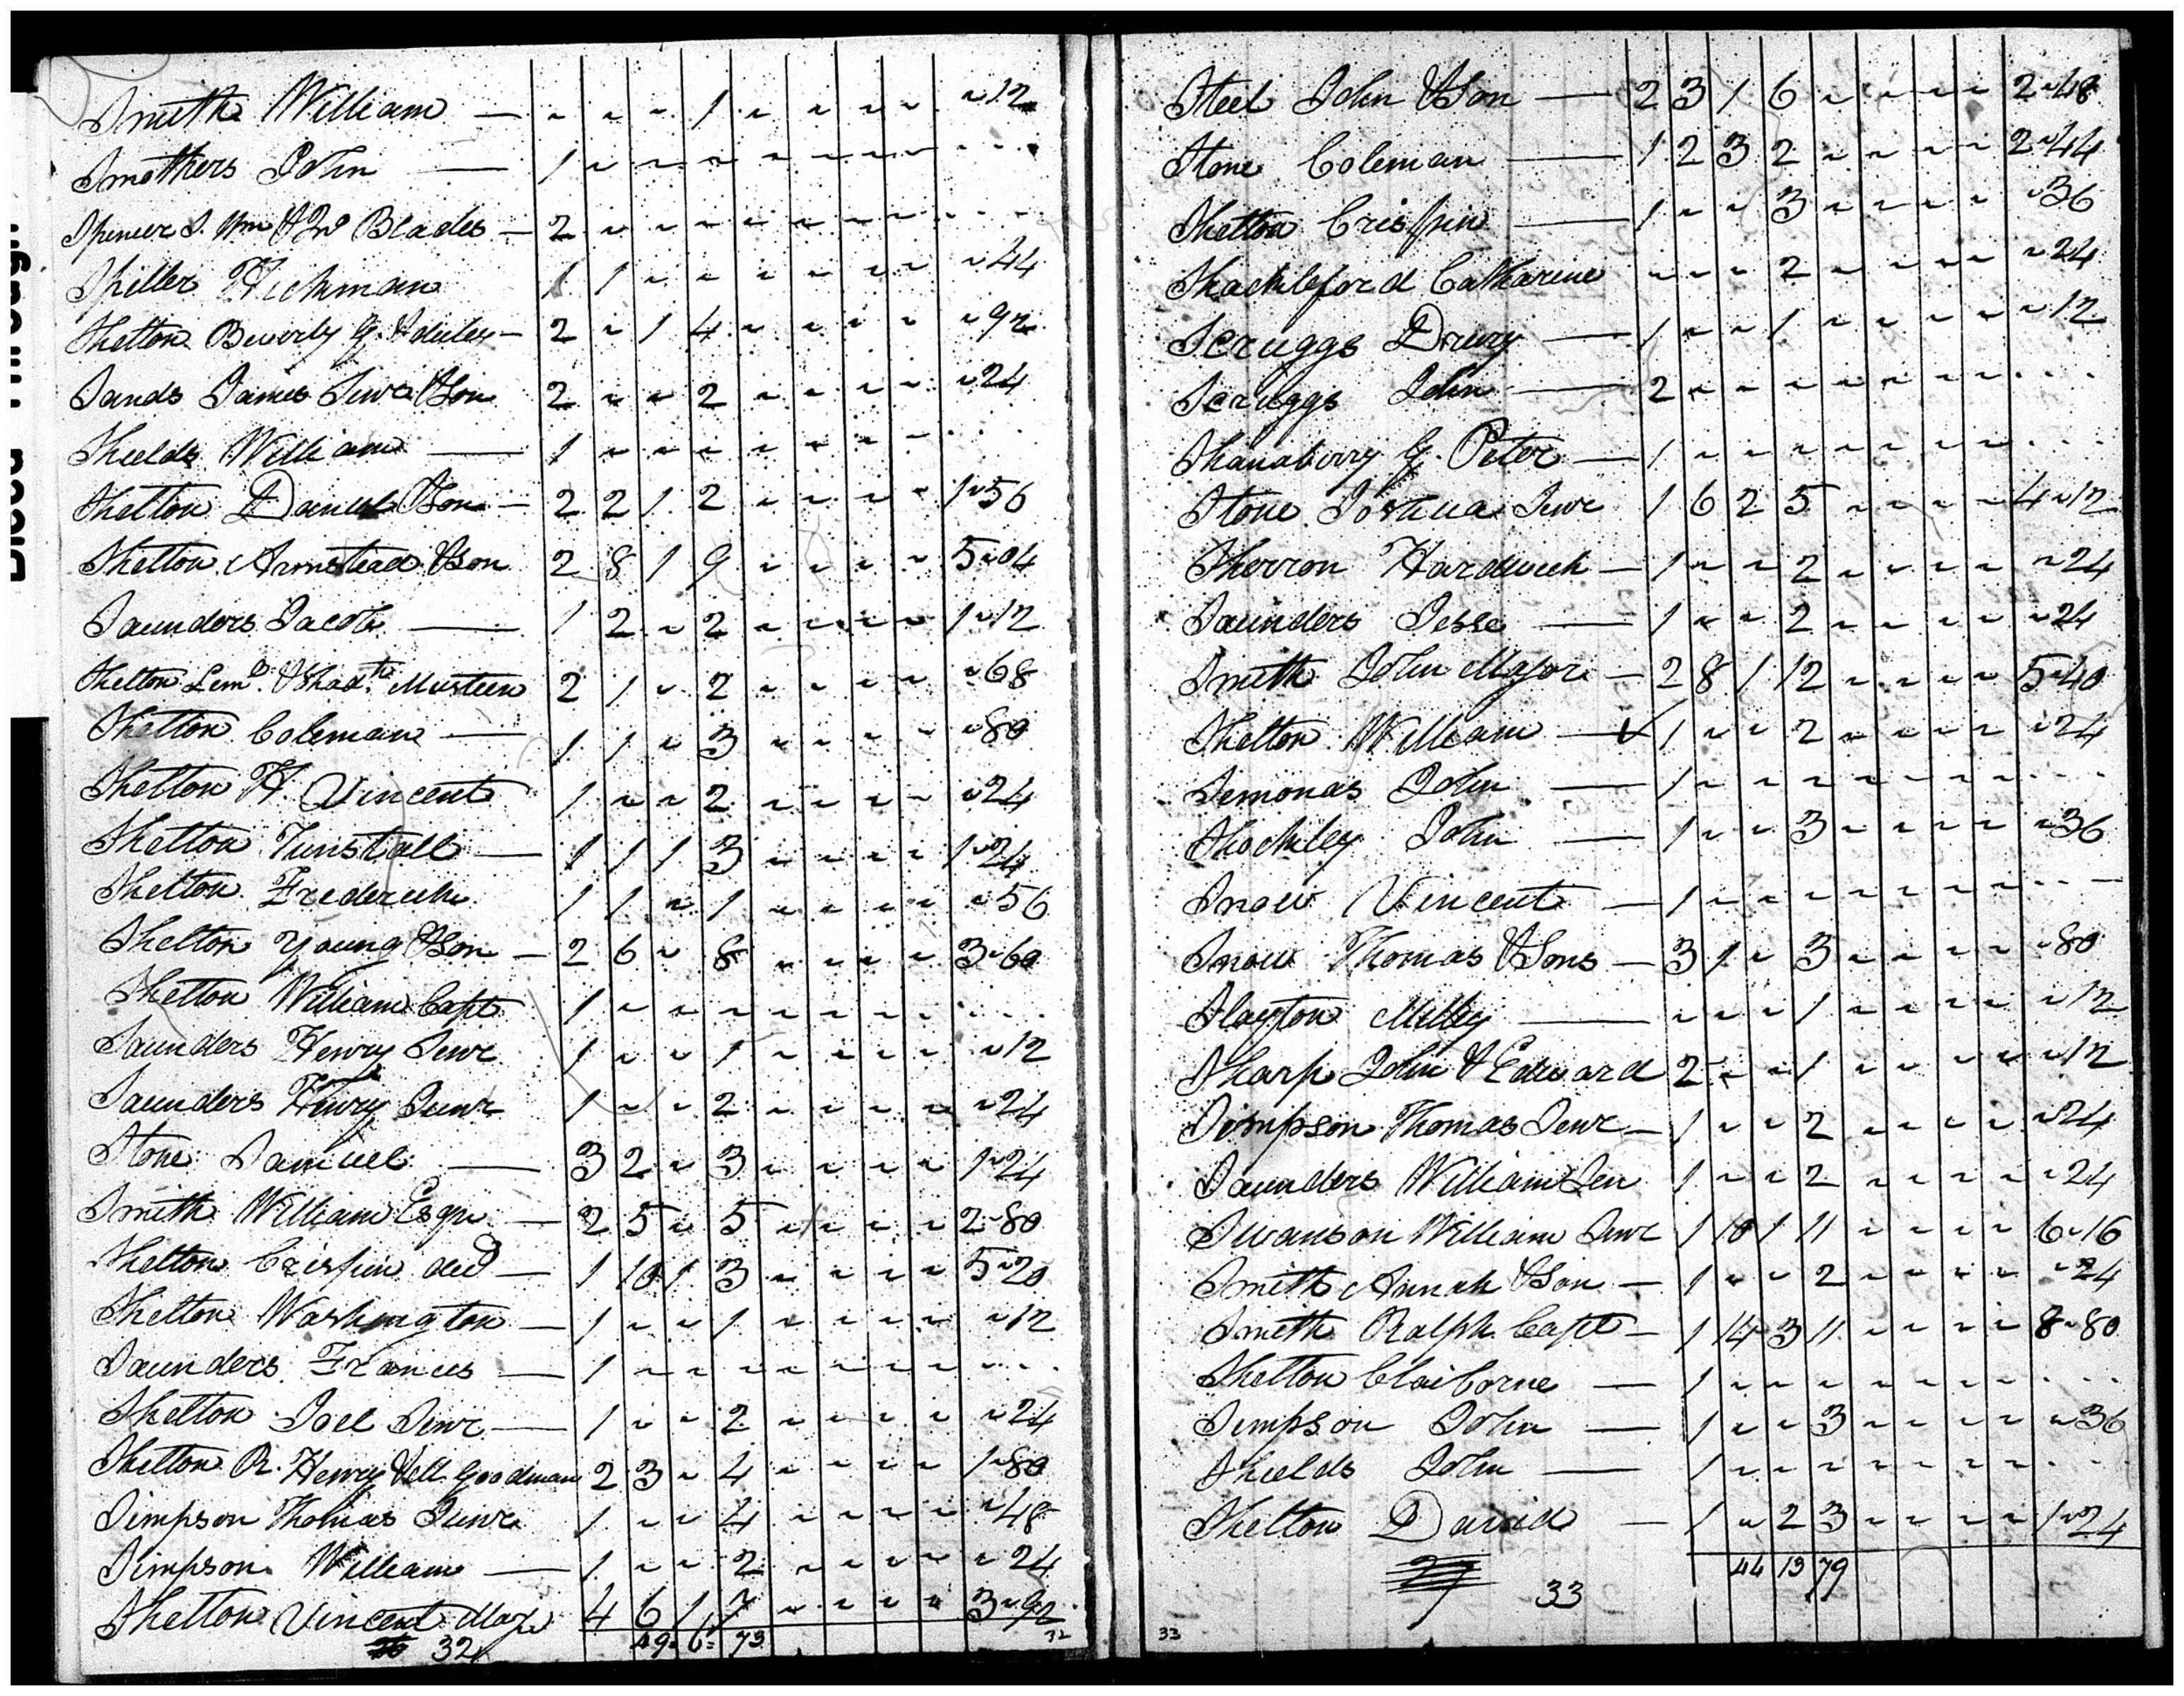 Smith William — ~ ~ ~ 1 ~ ~ ~ ~ ~12
Smothers John — 1 ~ ~ ~ ~ ~ ~ ~ ...
Spencer S. Wm & Jno Blades — 2 ~ ~ ~ ~ ~ ~ ~ ...
Spiller Hickman 1 1 ~ ~ ~ ~ ~ ~ ~44
Shelton Beverly G. — 2 ~ 1 4 ~ ~ ~ ~ ~92
Sands James Senr & Son 2 ~ ~ 2 ~ ~ ~ ~ ~24
Shields William — 1 ~ ~ ~ ~ ~ ~ ~ ...
Shelton Daniel & Son — 2 2 1 2 ~ ~ ~ ~ 1~56
Shelton Armstead & Son 2 8 1 9 ~ ~ ~ ~ 5~04
Saunders Jacob — 1 2 ~ 2 ~ ~ ~ ~ 1~12
Shelton Lemd. & Shadth. Musteen 2 1 ~ 2 ~ ~ ~ ~ ~68
Shelton Coleman — 1 1 ~ 3 ~ ~ ~ ~ ~80
Shelton H. Vincent 1 ~ ~ 2 ~ ~ ~ ~ ~24
Shelton Tunstall — 1 1 1 3 ~ ~ ~ ~ 1~24
Shelton Frederick 1 1 ~ 1 ~ ~ ~ ~ ~56
Shelton Young & Son — 2 6 ~ 8 ~ ~ ~ ~ 3~60
Shelton William Capt 1 ~ ~ ~ ~ ~ ~ ~ ...
Saunders Henry Senr 1 ~ ~ 1 ~ ~ ~ ~ ~12
Saunders Henry Junr 1 ~ ~ 2 ~ ~ ~ ~ ~24
Stone Samuel — 3 2 ~ 3 ~ ~ ~ ~ 1~24
Smith William Esqr — 2 5 ~ 5 ~ ~ ~ ~ 2~80
Shelton Crispin decd — 1 10 1 3 ~ ~ ~ ~ 5~20
Shelton Washington — 1 ~ ~ 1 ~ ~ ~ ~ ~12
Saunders Francis — 1 ~ ~ ~ ~ ~ ~ ~ ...
Shelton Joel Senr — 1 ~ ~ 2 ~ ~ ~ ~ ~24
Shelton R. Henry & Goodman 2 3 ~ 4 ~ ~ ~ ~ 1~80
Simpson Thomas Junr 1 ~ ~ 4 ~ ~ ~ ~ ~48
Simpson William — 1 ~ ~ 2 ~ ~ ~ ~ ~24
Shelton Vincent Majr 4 6 1 7 ~ ~ ~ ~ 3~92
32 49= 6= 73 32
Steel John & Son — 2 3 1 6 ~ ~ ~ ~ 2~48
Stone Coleman — 1 2 3 2 ~ ~ ~ ~ 2~44
Shelton Crispin — 1 ~ ~ 3 ~ ~ ~ ~ ~36
Shackleford Catharine ~ ~ ~ 2 ~ ~ ~ ~ ~24
Scruggs Drury — 1 ~ ~ 1 ~ ~ ~ ~ ~12
Scruggs John — 2 ~ ~ ~ ~ ~ ~ ~ ...
Shanaberry G. Peter — 1 ~ ~ ~ ~ ~ ~ ~ ...
Stone Joshua Senr 1 6 2 5 ~ ~ ~ ~ 4~12
Sherron Hardwick — 1 ~ ~ 2 ~ ~ ~ ~ ~24
Saunders Jesse — 1 ~ ~ 2 ~ ~ ~ ~ ~24
Smith John Major — 2 8 1 12 ~ ~ ~ ~ 5~40
Shelton William — 1 ~ ~ 2 ~ ~ ~ ~ ~24
Semonas John — 1 ~ ~ ~ ~ ~ ~ ~ ...
Shockley John — 1 ~ ~ 3 ~ ~ ~ ~ ~36
Snow Vincent — 1 ~ ~ ~ ~ ~ ~ ~ ...
Snow Thomas & Sons — 3 1 ~ 3 ~ ~ ~ ~ ~80
Slayton Milley — ~ ~ ~ 1 ~ ~ ~ ~ ~12
Sharp John & Edward 2 ~ ~ 1 ~ ~ ~ ~ ~12
Simpson Thomas Senr — 1 ~ ~ 2 ~ ~ ~ ~ ~24
Saunders William Sen 1 ~ ~ 2 ~ ~ ~ ~ ~24
Swanson William Senr 1 10 1 11 ~ ~ ~ ~ 6~16
Smith Annah & Son — 1 ~ ~ 2 ~ ~ ~ ~ ~24
Smith Ralph Capt — 1 14 3 11 ~ ~ ~ ~ 8~80
Shelton Claiborne — 1 ~ ~ ~ ~ ~ ~ ~ ...
Simpson John — 1 ~ ~ 3 ~ ~ ~ ~ ~36
Shields John — 1 ~ ~ ~ ~ ~ ~ ~ ...
Shelton David — 1 ~ 2 3 ~ ~ ~ ~ 1~24
44 13 79
33
33